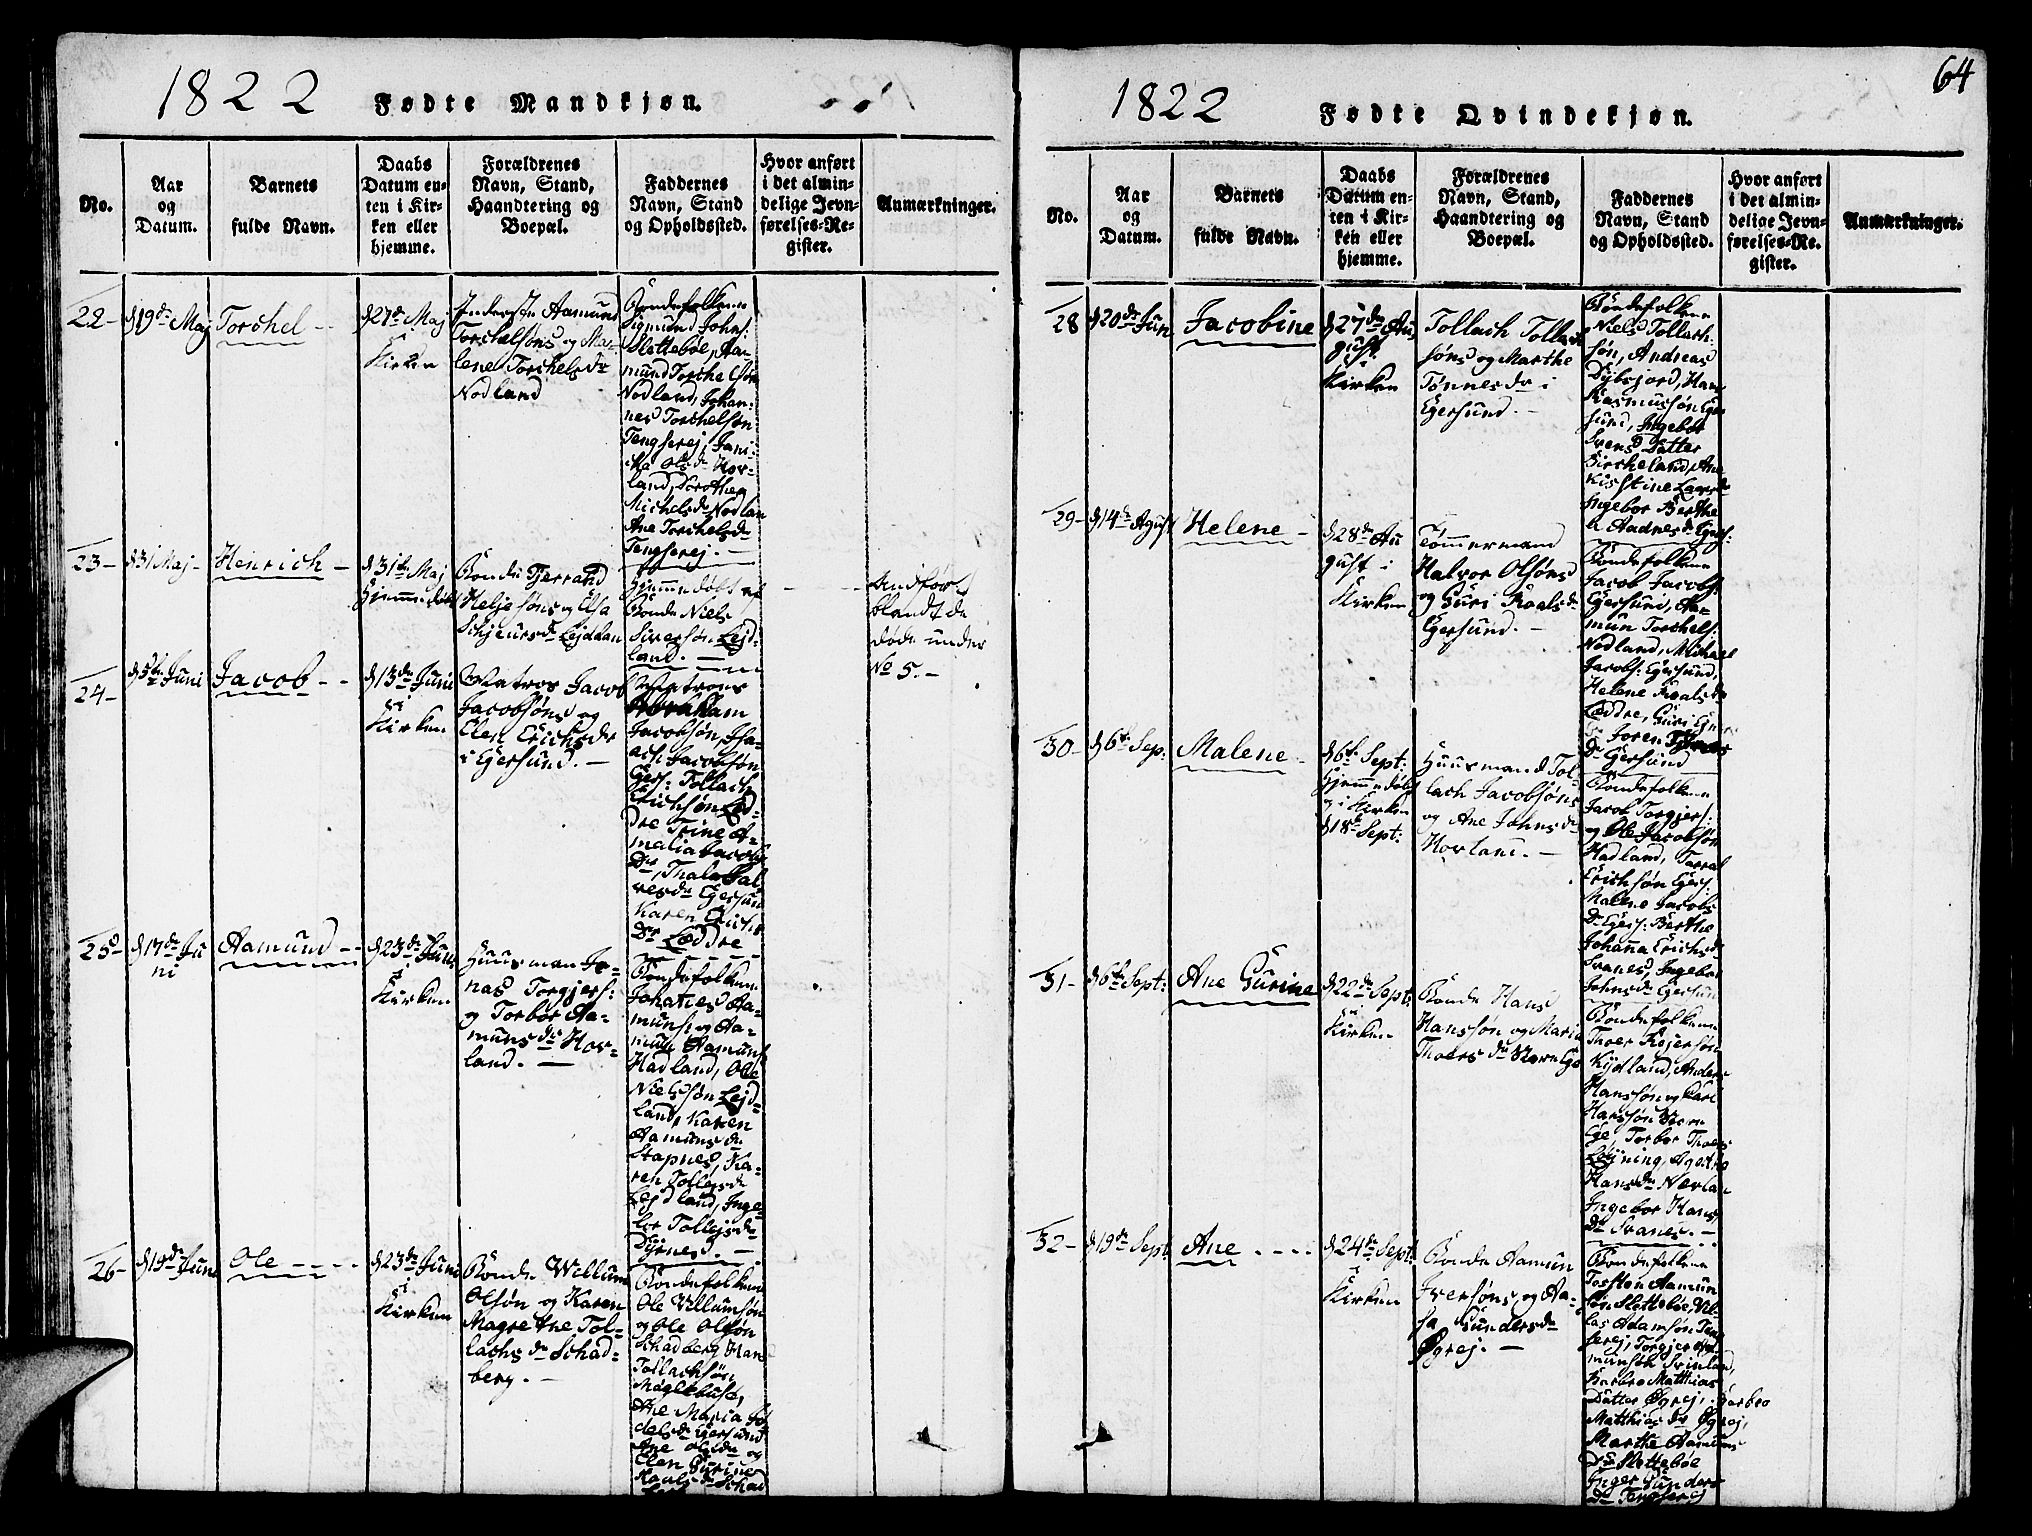 1822 Fødte Mandkjøn.
No.
Aar
og
Datum.
Barnets
fulde Navn.
Daabs
Datum en-
ten i Kir-
ken eller
hjemme.
Forældrenes
Navn, Stand,
Haandtering og
Boepæl.
Faddernes
Navn, Stand
og Opholdssted.
Hvor anført
i det almin-
delige Jevn-
førelses-Re-
gister.
Anmærkninger.
22-
d 19de Maj
Torchel
d 27de Maj
i
Kirken
Inderste Aamund
Torchelsøns og Ma-
lene Torchelsdr
Nodland
Bondefolkene
Sigmund Johns:
Slettebøe, Aa-
mund Torchelsøn
Nodland, Johan-
nes Torchelsøn
Tengserej,
Olsdr Hov-
land, Dorothea
Michelsdr Nodlan
Ane Torchelsdr
Tengserej. -
23-
d 31 Maj
Henrich
d 31te Maj
Hjemmedøbt
Bonde Tjerrand
Heljesøns og Elsa
Lejdlan
Hjemmedøbt af
Bonde Niels
Siversøn Lejd-
land. -
Andført
blandt de
døde under
No 5. -
24-
d 5te Juni
Jacob
d 13de Juni
i
Kirken
Matros Jacob
Jacobsøns og
Elen Erichsdr
i Egersund. -
Matrons
Abraham
Jacobsøn, Isa-
ach Jacobsøn
Egers: Tollach
Erichsøn Led-
dre Trine A-
malia Jacobs
Dr, Thala Sal-
vesdr Egersund
Karen Erichs
Dr Leddre
25-
d 17de Ju
ni
Aamund
d 23de Juni
i
Kirken
Huusman Jo-
nas Torgjers:
og Torbor Aa-
munsdr Hov-
land. -
Bondefolkene
Johanes Aa-
muns: og Aa-
mund Aamuns:
Hadland, Ole
Nielssøn Lejd-
land, Karen
Aamunsdr
Stapnes, Ka-
ren Tollejsdr
Lejdland, Inge-
bor Tollejsdr
Dyrnes. -
26-
d 19de Juni
Ole
d 23de Juni
i
Kirken
Bonde Willum
Olsøn og Karen
Magrethe Tol-
lachsdr Schad-
berg. -
Bondefolkene
Ole Villumsøn
og Ole Olsøn
Schadberg Han
Tollachsøn
Møglebust,
Ane Maria
Egersund
Ane Olsdr og
Elen Gurine
Schad
1822 Fødte Qvindekjøn.
64
No.
Aar
og
Datum.
Barnets
fulde Navn.
Daabs
Datum en-
ten i Kir-
ken eller
hjemme.
Forældrenes
Navn, Stand,
Haandtering og
Boepæl.
Faddernes
Navn, Stand
og Opholdssted.
Hvor anført
i det almin-
delige Jevn-
førelses-Re-
gister.
Anmærkninger.
28
d 20de Jun
Jacobine
d 27de Au
gust
i
Kirken
Tollach Tollach
søns og Marthe
Tønnesdr i
Egersund. -
Bøndefolkene
Niels Tollach-
søn, Andreas
Dybsjord, Hans
Rasmussøn Eger
sund, Ingebor
Svens Datter
Bircheland, Ane
Kisstine Larsdr
Ingebor Berthe
Aadnesdr Egers:
29-
d 14de Agust
Helene
d 28de Au
gust i
Kirken
Tømmermand
Halvor Olsøns
og Guri Roalsdr
Egersund. -
Bondefolkene
Jacob Jacobs:
Egersund, Aa-
mun Torchels:
Nodland, Michael
Jacobs: Egersund,
Helene Roalsdr
Leddre, Guri
Joren
Dr Egersund
30-
d 6te Sep:
Malene
d 6te Sept:
Hjemmedøbt
og i Kirken
d 18de Sept:
Huusmand Tol-
lach Jacobsøns
og Ane Johnsdr
Hovland. -
Bondefolkene
Jacob Torgjers:
og Ole Jacobsøn
Hadland,
Erichsøn Egers:
Malene Jacobs
Dr Egers: Berthe
Johanna Erichsdr
Svanes, Ingebor
Johnsdr Egersund
31-
d 6te Sept:
Ane Gurine
d 22de Sept:
i
Kirken
Bonde Hans
Hanssøn og Maria
Thoersdr
Bondefolkene
Thoer Rejersøn
Kydland, Anders
Hanssøn og Carl
Hanssøn
Ege, Torbor Thoers
Løyning, Agethe
Hansdr Nevlan
Ingebor Hans
Dr Svanes. -
32-
d 19de Sept
Ane
d 24de Sept:
i
Kirken
Bonde Aamun
Iversøns og Aa-
sa Gundersdr
Øgrej. -
Bondefolkene
Torsten Aamun
søn Slettebøe,
Adamsøn Teng
serej, Torgjer Aa-
munsøn Svinland,
Barbro Matthias
Datter Øgrej, Barbro
Matthiasdr Øgrej,
Marthe Aamuns
Dr Slettebøe
Inger Gunders
dr Tengserej